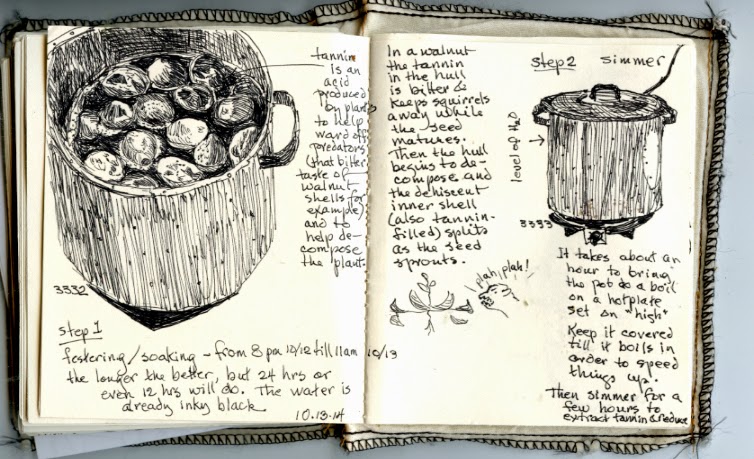 tannin
is an
acid
produced
by plants
to help
ward off
predators
(that bitter
taste of
walnut
shells for
example)
and to
help de-
compose
the plants
3332
step 1
festering/soaking - from 8 pm 10/12 till 11am 10/13
the longer the better, but 24 hrs or
even 12 hrs will do. The water is
already inky black
10.13.14
In a walnut
the tannin
in the hull
is bitter &
keeps squirrels
away while
the seed
matures.
Then the hull
begins to de-
compose and
the dehiscent
inner shell
(also tannin-
filled) splits
as the seed
sprouts.
plah, plah!
step 2 simmer
level of H2O
3333
It takes about an
hour to bring
the pot to a boil
on a hotplate
set on "high"
Keep it covered
till it boils in
order to speed
things up.
Then simmer for a
few hours to
extract tannin & reduce